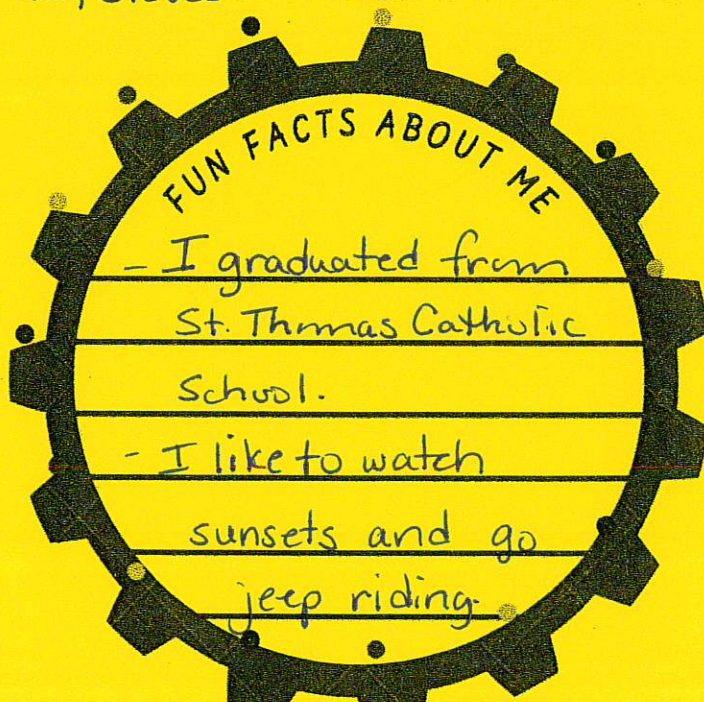 FUN FACTS ABOUT ME
- I graduated from
St. Thomas Catholic
School.
- I like to watch
sunsets and go
jeep riding.